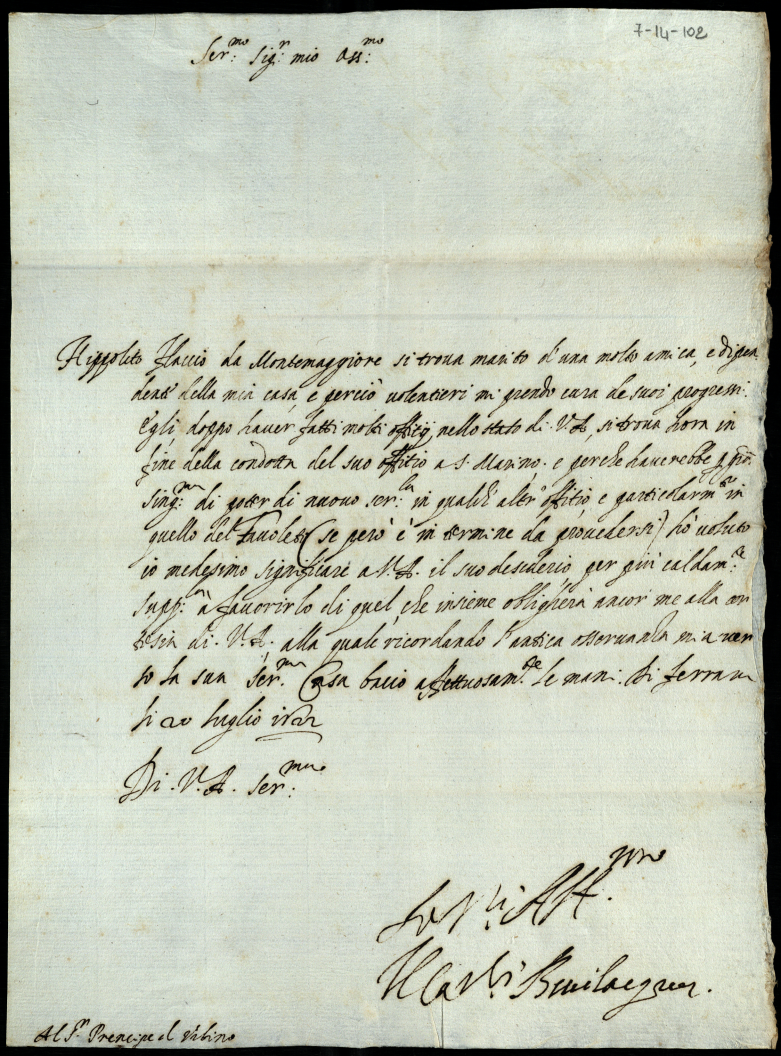 7-14-102
Ser:mo Sig:r mio Oss:mo
Hippolito Flaccio da Montemaggiore si trova marito d'una molto amica, e dipen
dente della mia casa, e perciò volentieri mi prendo cura de suoi progressi.
Egli doppo haver fatti molti offitij nello stato di V.A., si trova hora in
fine della condotta del suo offitio a S. Marino. e perche haverebbe p gra
sing:ma di poter di nuovo ser:la in qualch' altro offitio e particolarm:te in
quello del Tavoleto (se però è in termine da provedersi) hò voluto
io medesimo significare a V.A. il suo desiderio, per più caldam:te
supp:la à favorirlo di quel, che insieme obligherà ancor me alla cor
tesia di V.A., alla quale ricordando l'antica osservanza mia ver
so la sua Ser:ma Casa bacio affettuosam:te le mani. Di Ferrara
li 20 luglio
Di V.A. Ser:ma
Il Car:l Bevilacqua.
Al S:r Prencipe d'Urbino